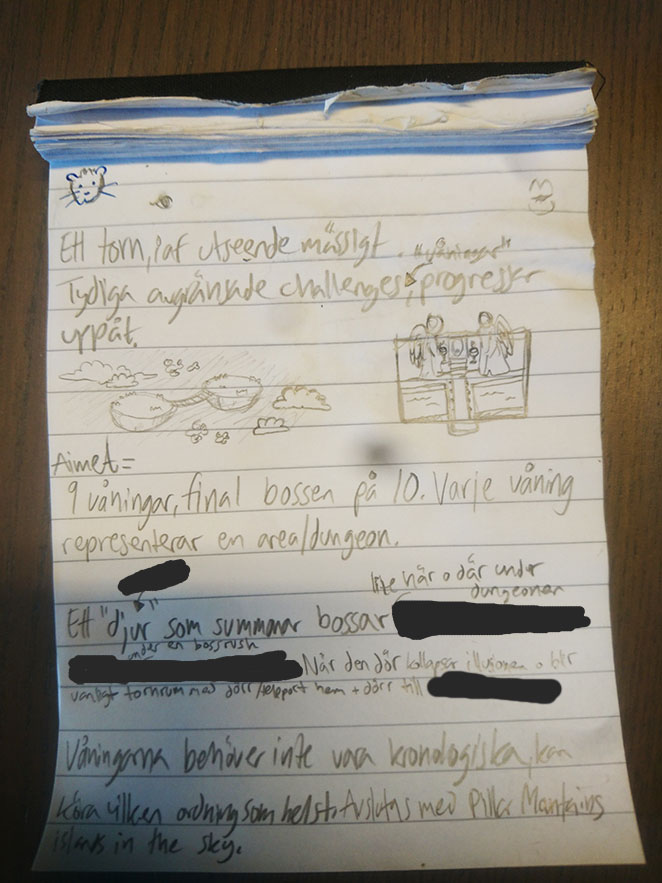 Ett torn, iaf utseende mässigt. "våningar"
Tydliga avgränsade challenges, progresser
uppåt.
Aimet =
9 våningar, final bossen på 10. Varje våning
representerar en area/dungeon.
lite här o där under
dungeonen
Ett "djur" som summonar bossar
under en bossrush
När den dör kollapsar illusionen o blir
vanligt tornrum med dörr/teleport hem + dörr till
Våningarna behöver inte vara kronologiska, kan
köra vilken ordning som helst. Avslutas med Pillar Mountains
islands in the sky.